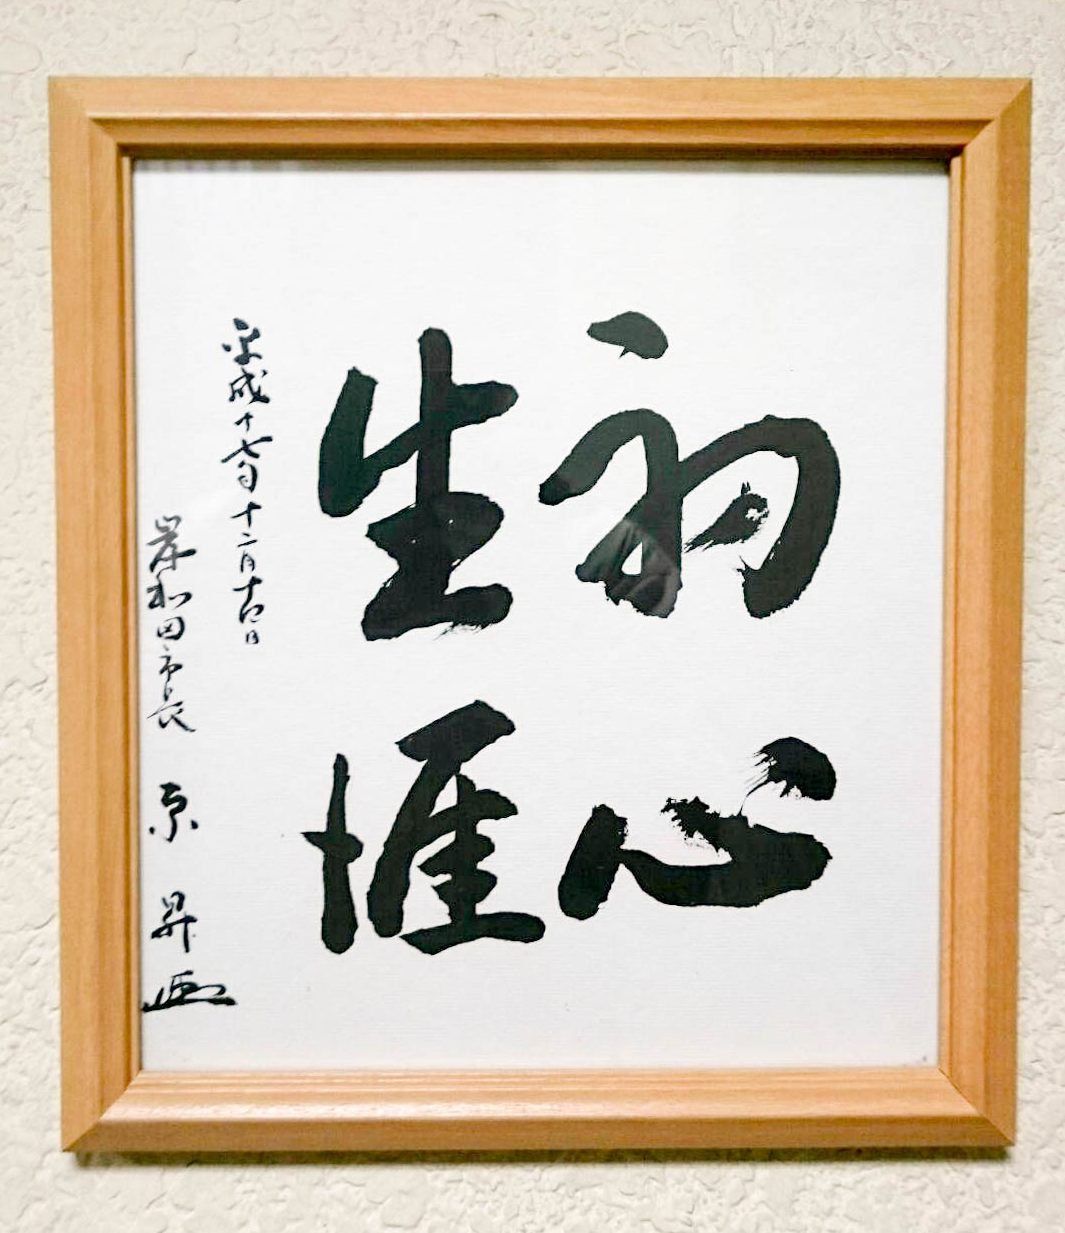 初心
生涯
平成十七年十二月十四日
岸和田市長 原 昇